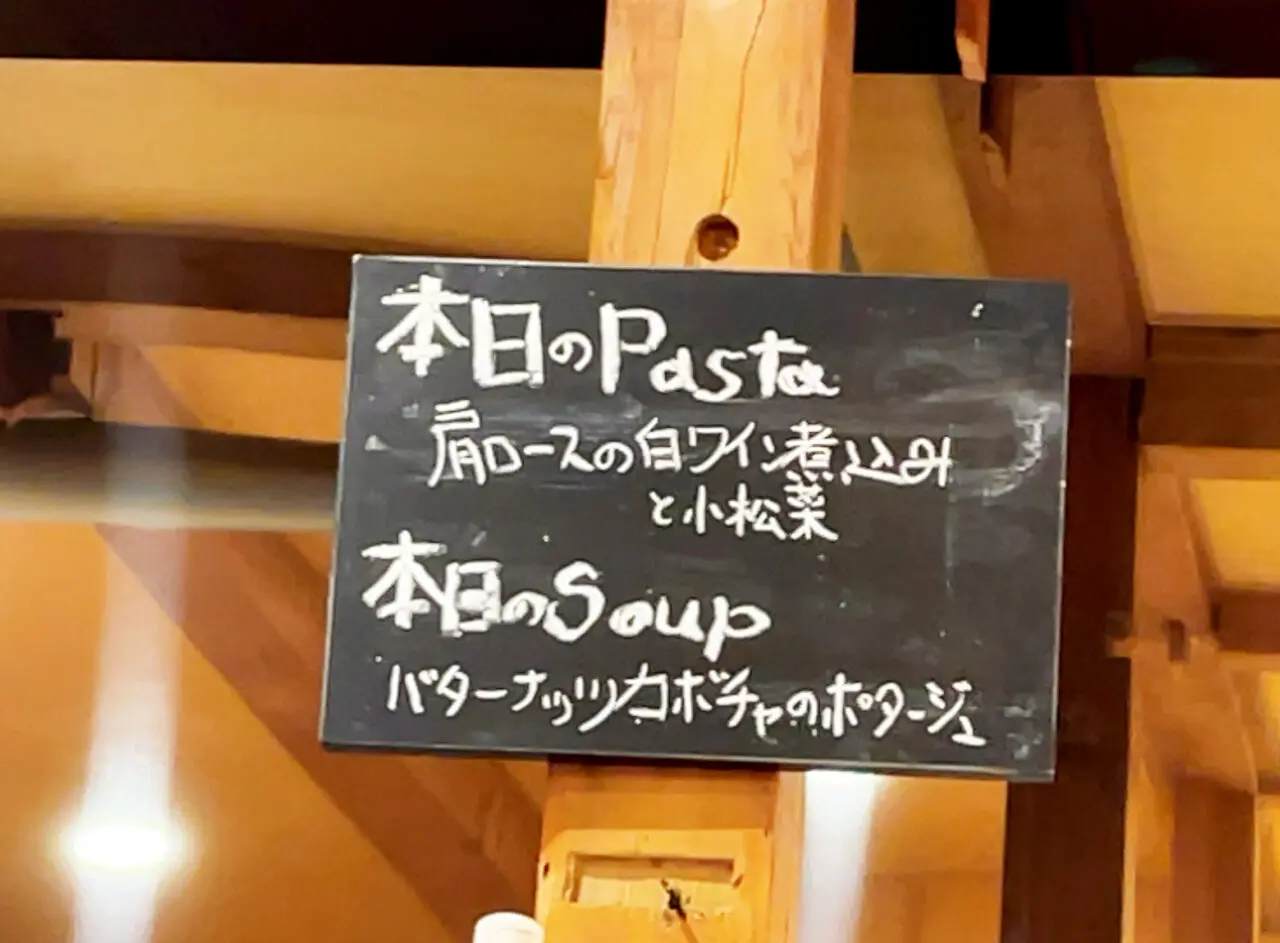 本日のPasta
肩ロースの白ワイン煮込み
と小松菜
本日のSoup
バターナッツカボチャのポタージュ